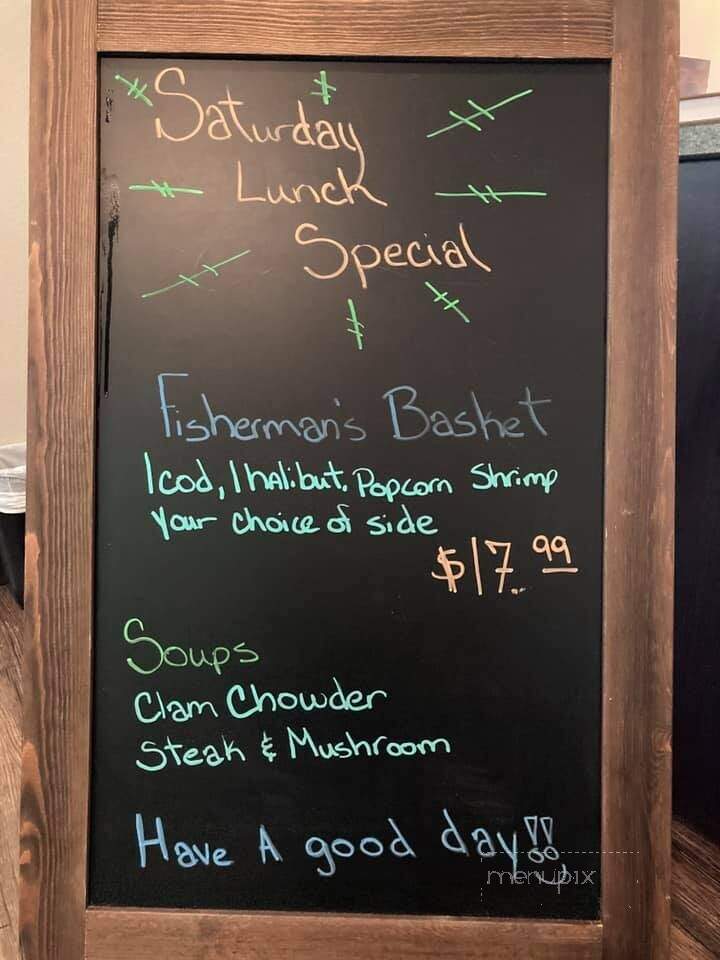 Saturday
Lunch
Special
Fisherman's Basket
1 cod, 1 halibut, Popcorn Shrimp
Your choice of side
$17.99
Soups
Clam Chowder
Steak & Mushroom
Have A good day!!
menupix